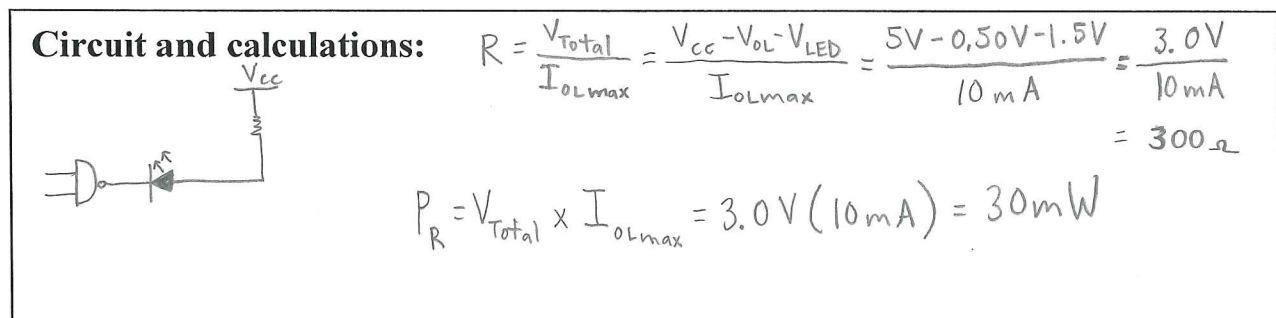 Circuit and calculations:
R = V_Total / I_OLmax = (V_CC - V_OL - V_LED) / I_OLmax = (5V - 0.50V - 1.5V) / 10 mA = 3.0V / 10 mA
= 300 Ω
Vcc
P_R = V_Total x I_OLmax = 3.0V (10mA) = 30mW